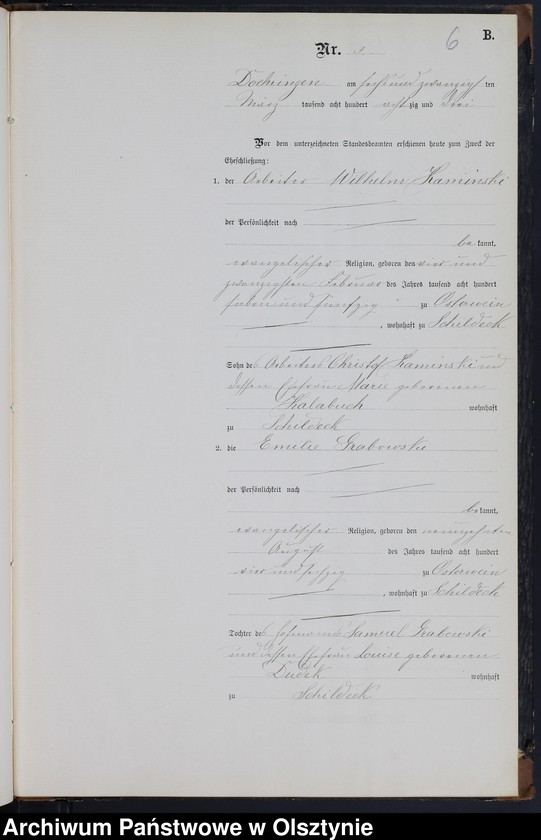 6
B.
Nr.
Doehringen am sechs und zwanzigsten
März tausend acht hundert achtzig und drei
Vor dem unterzeichneten Standesbeamten erschienen heute zum Zweck der
Eheschließung:
1. der Arbeiter Wilhelm Kaminski
der Persönlichkeit nach
bekannt,
evangelischer Religion, geboren den vier und
zwanzigsten Februar des Jahres tausend acht hundert
sieben und fünfzig zu Osterwein
, wohnhaft zu Schildeck
Sohn des Arbeiters Christof Kaminski und
dessen Ehefrau Marie geborenen
Kalabuch wohnhaft
zu Schildeck
2. die Emilie Grabowski
der Persönlichkeit nach
bekannt,
evangelischer Religion, geboren den neunzehnten
August des Jahres tausend acht hundert
vier und sechzig zu Osterwein
, wohnhaft zu Schildeck
Tochter des Hofmanns Samuel Grabowski
und dessen Ehefrau Louise geborenen
Dudek wohnhaft
zu Schildeck
Archiwum Państwowe w Olsztynie